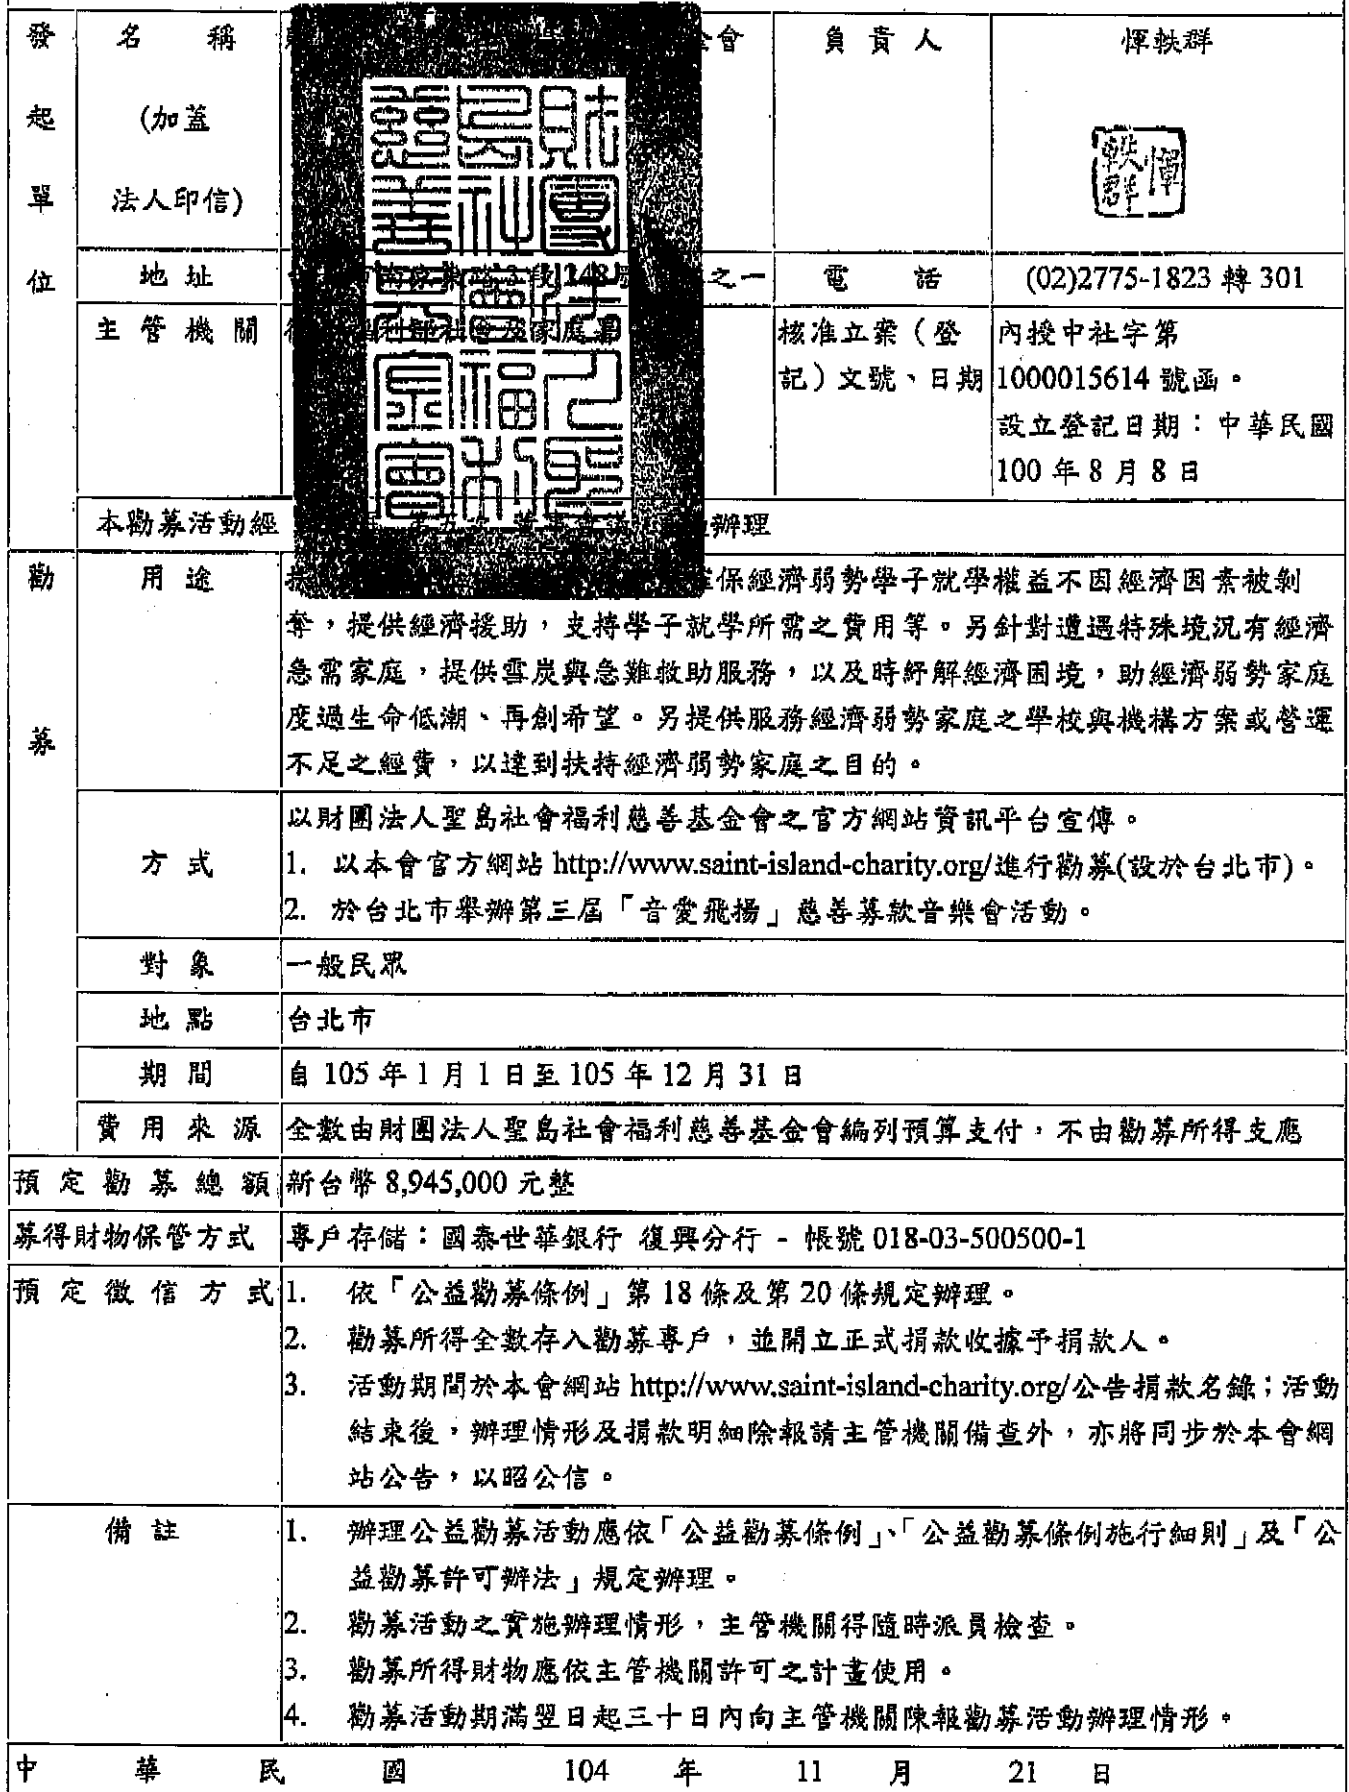 發起單位
名稱
(加蓋
法人印信)
金會
財團法人聖島社會福利慈善基金會
負責人
惲軼群
惲軼群
地址
3段248
之一
電話
(02)2775-1823 轉 301
主管機關
利部社會及家庭署
核准立案（登
記）文號、日期
內授中社字第
1000015614 號函。
設立登記日期：中華民國
100 年 8 月 8 日
本勸募活動經
第五次
辦理
勸募
用途
保經濟弱勢學子就學權益不因經濟因素被剝
奪，提供經濟援助，支持學子就學所需之費用等。另針對遭遇特殊境況有經濟
急需家庭，提供雪炭與急難救助服務，以及時紓解經濟困境，助經濟弱勢家庭
度過生命低潮、再創希望。另提供服務經濟弱勢家庭之學校與機構方案或營運
不足之經費，以達到扶持經濟弱勢家庭之目的。
方式
以財團法人聖島社會福利慈善基金會之官方網站資訊平台宣傳。
1. 以本會官方網站 http://www.saint-island-charity.org/進行勸募(設於台北市)。
2. 於台北市舉辦第三屆「音愛飛揚」慈善募款音樂會活動。
對象
一般民眾
地點
台北市
期間
自 105 年 1 月 1 日至 105 年 12 月 31 日
費用來源
全數由財團法人聖島社會福利慈善基金會編列預算支付，不由勸募所得支應
預定勸募總額
新台幣 8,945,000 元整
募得財物保管方式
專戶存儲：國泰世華銀行 復興分行 - 帳號 018-03-500500-1
預定徵信方式
1. 依「公益勸募條例」第 18 條及第 20 條規定辦理。
2. 勸募所得全數存入勸募專戶，並開立正式捐款收據予捐款人。
3. 活動期間於本會網站 http://www.saint-island-charity.org/公告捐款名錄；活動
結束後，辦理情形及捐款明細除報請主管機關備查外，亦將同步於本會網
站公告，以昭公信。
備註
1. 辦理公益勸募活動應依「公益勸募條例」、「公益勸募條例施行細則」及「公
益勸募許可辦法」規定辦理。
2. 勸募活動之實施辦理情形，主管機關得隨時派員檢查。
3. 勸募所得財物應依主管機關許可之計畫使用。
4. 勸募活動期滿翌日起三十日內向主管機關陳報勸募活動辦理情形。
中華民國 104 年 11 月 21 日